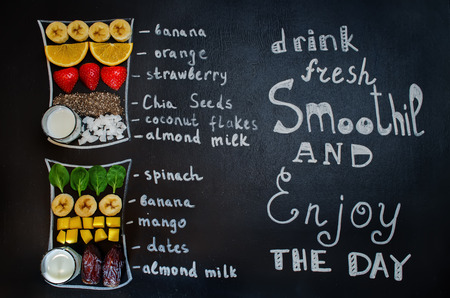 banana
orange
strawberry
Chia Seeds
coconut flakes
almond milk
spinach
banana
mango
dates
almond milk
drink
fresh
Smoothil
AND
Enjoy
THE DAY